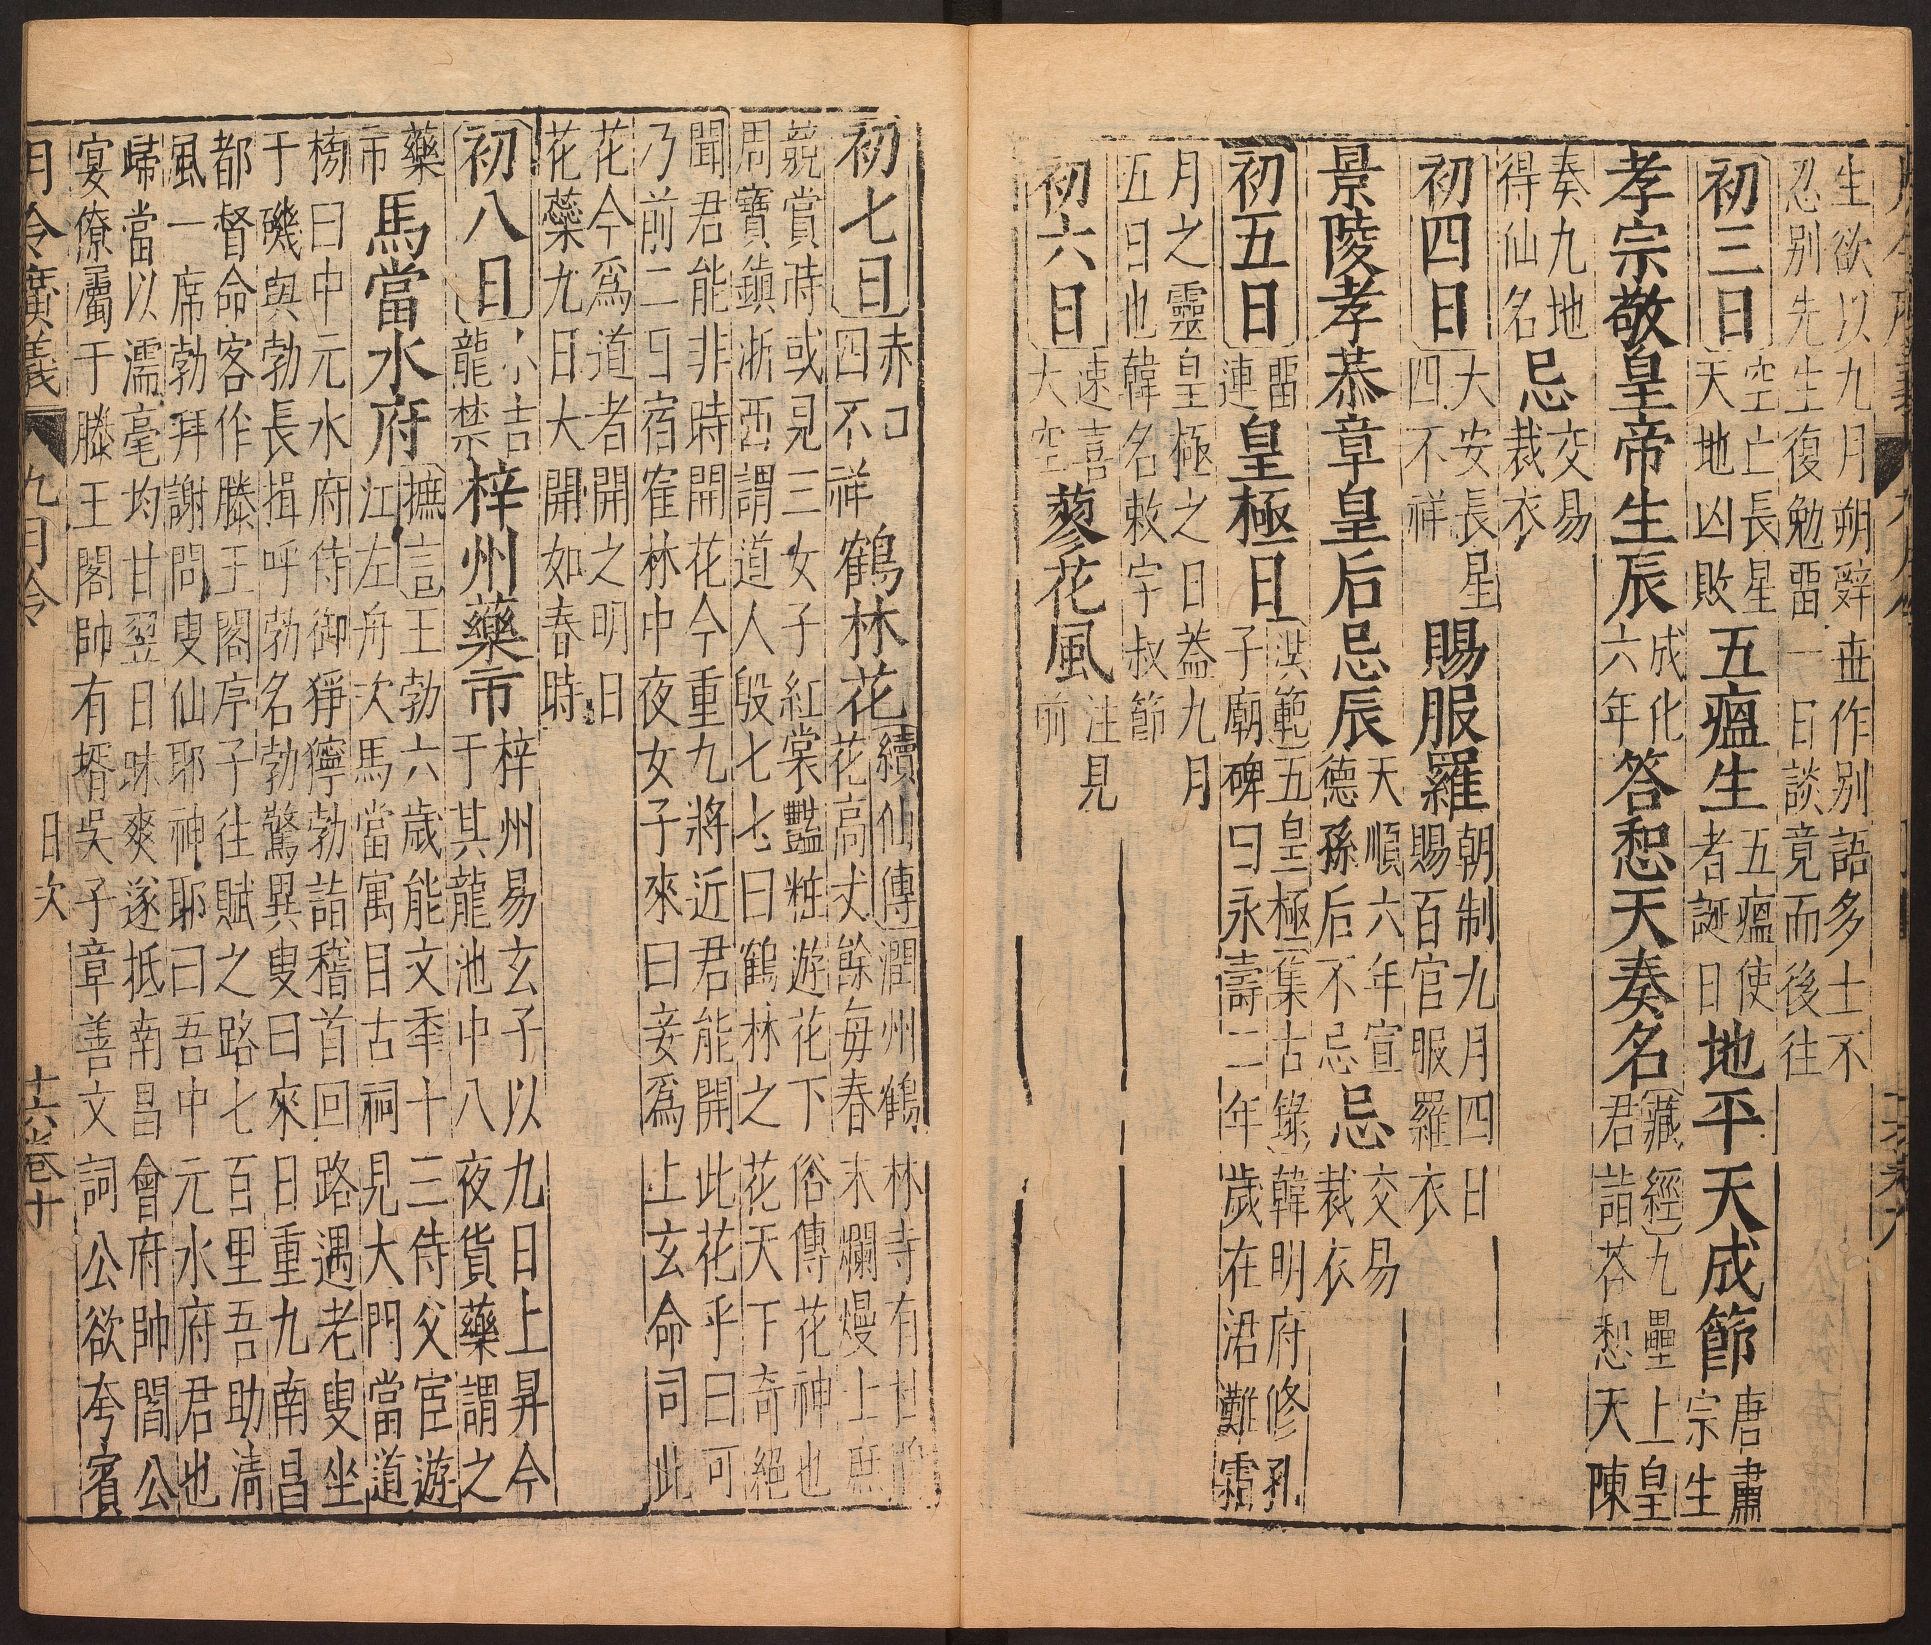 生欲以九月朔辤世作别語多士不
忍别先生復勉畱一日談竟而後往
初三日 空亡長星
天地凶敗 五瘟生 五瘟使
者誕日 地平天成節 唐肅
宗生
孝宗敬皇帝生辰 成化
六年 答恕天奏名 藏經 九壘上皇
君詣荅恕天陳
奏九地
得仙名 忌 交易
裁衣
初四日 大安長星
四不祥 賜服羅 朝制九月四日
賜百官服羅衣
景陵孝恭章皇后忌辰 天順六年宣
德孫后不忌 忌 交易
裁衣
初五日 畱
連 皇極日 洪範 五皇極 集古錄 韓明府修孔
子廟碑曰永壽二年歲在涒難霜
月之靈皇極之日葢九月
五日也韓名敕字叔節
初六日 速喜
大空 蓼花風 注見
前
初七日 赤口
四不祥 鶴林花 續仙傳 潤州鶴林寺有杜鵑
花高丈餘每春末爛熳上庶
競賞時或見三女子紅裳豔粧遊花下俗傳花神也
周寶鎮浙西謂道人殷七七曰鶴林之花天下奇絕
聞君能非時開花今重九將近君能開此花乎曰可
乃前二日宿寉林中夜女子來曰妾爲上玄命司此
花今爲道者開之明日
花蘂九日大開如春時
初八日 小吉
龍禁 梓州藥市 梓州易玄子以九日上昇今
于其龍池中八夜貨藥謂之
藥
市 馬當水府 摭言 王勃六歲能文年十三侍父宦遊
江左舟次馬當寓目古祠見大門當道
榜曰中元水府侍御猙獰勃詣稽首回路遇老叟坐
于磯與勃長揖呼勃名勃驚異叟曰來日重九南昌
都督命客作滕王閣序子往賦之路七百里吾助清
風一席勃拜謝問叟仙耶神耶曰吾中元水府君也
歸當以濡毫均甘翌日昧爽遂抵南昌會府帥閻公
宴僚屬于滕王閣帥有壻吳子章善文詞公欲夸賓
月令廣義 九月令 日次 十六卷 十